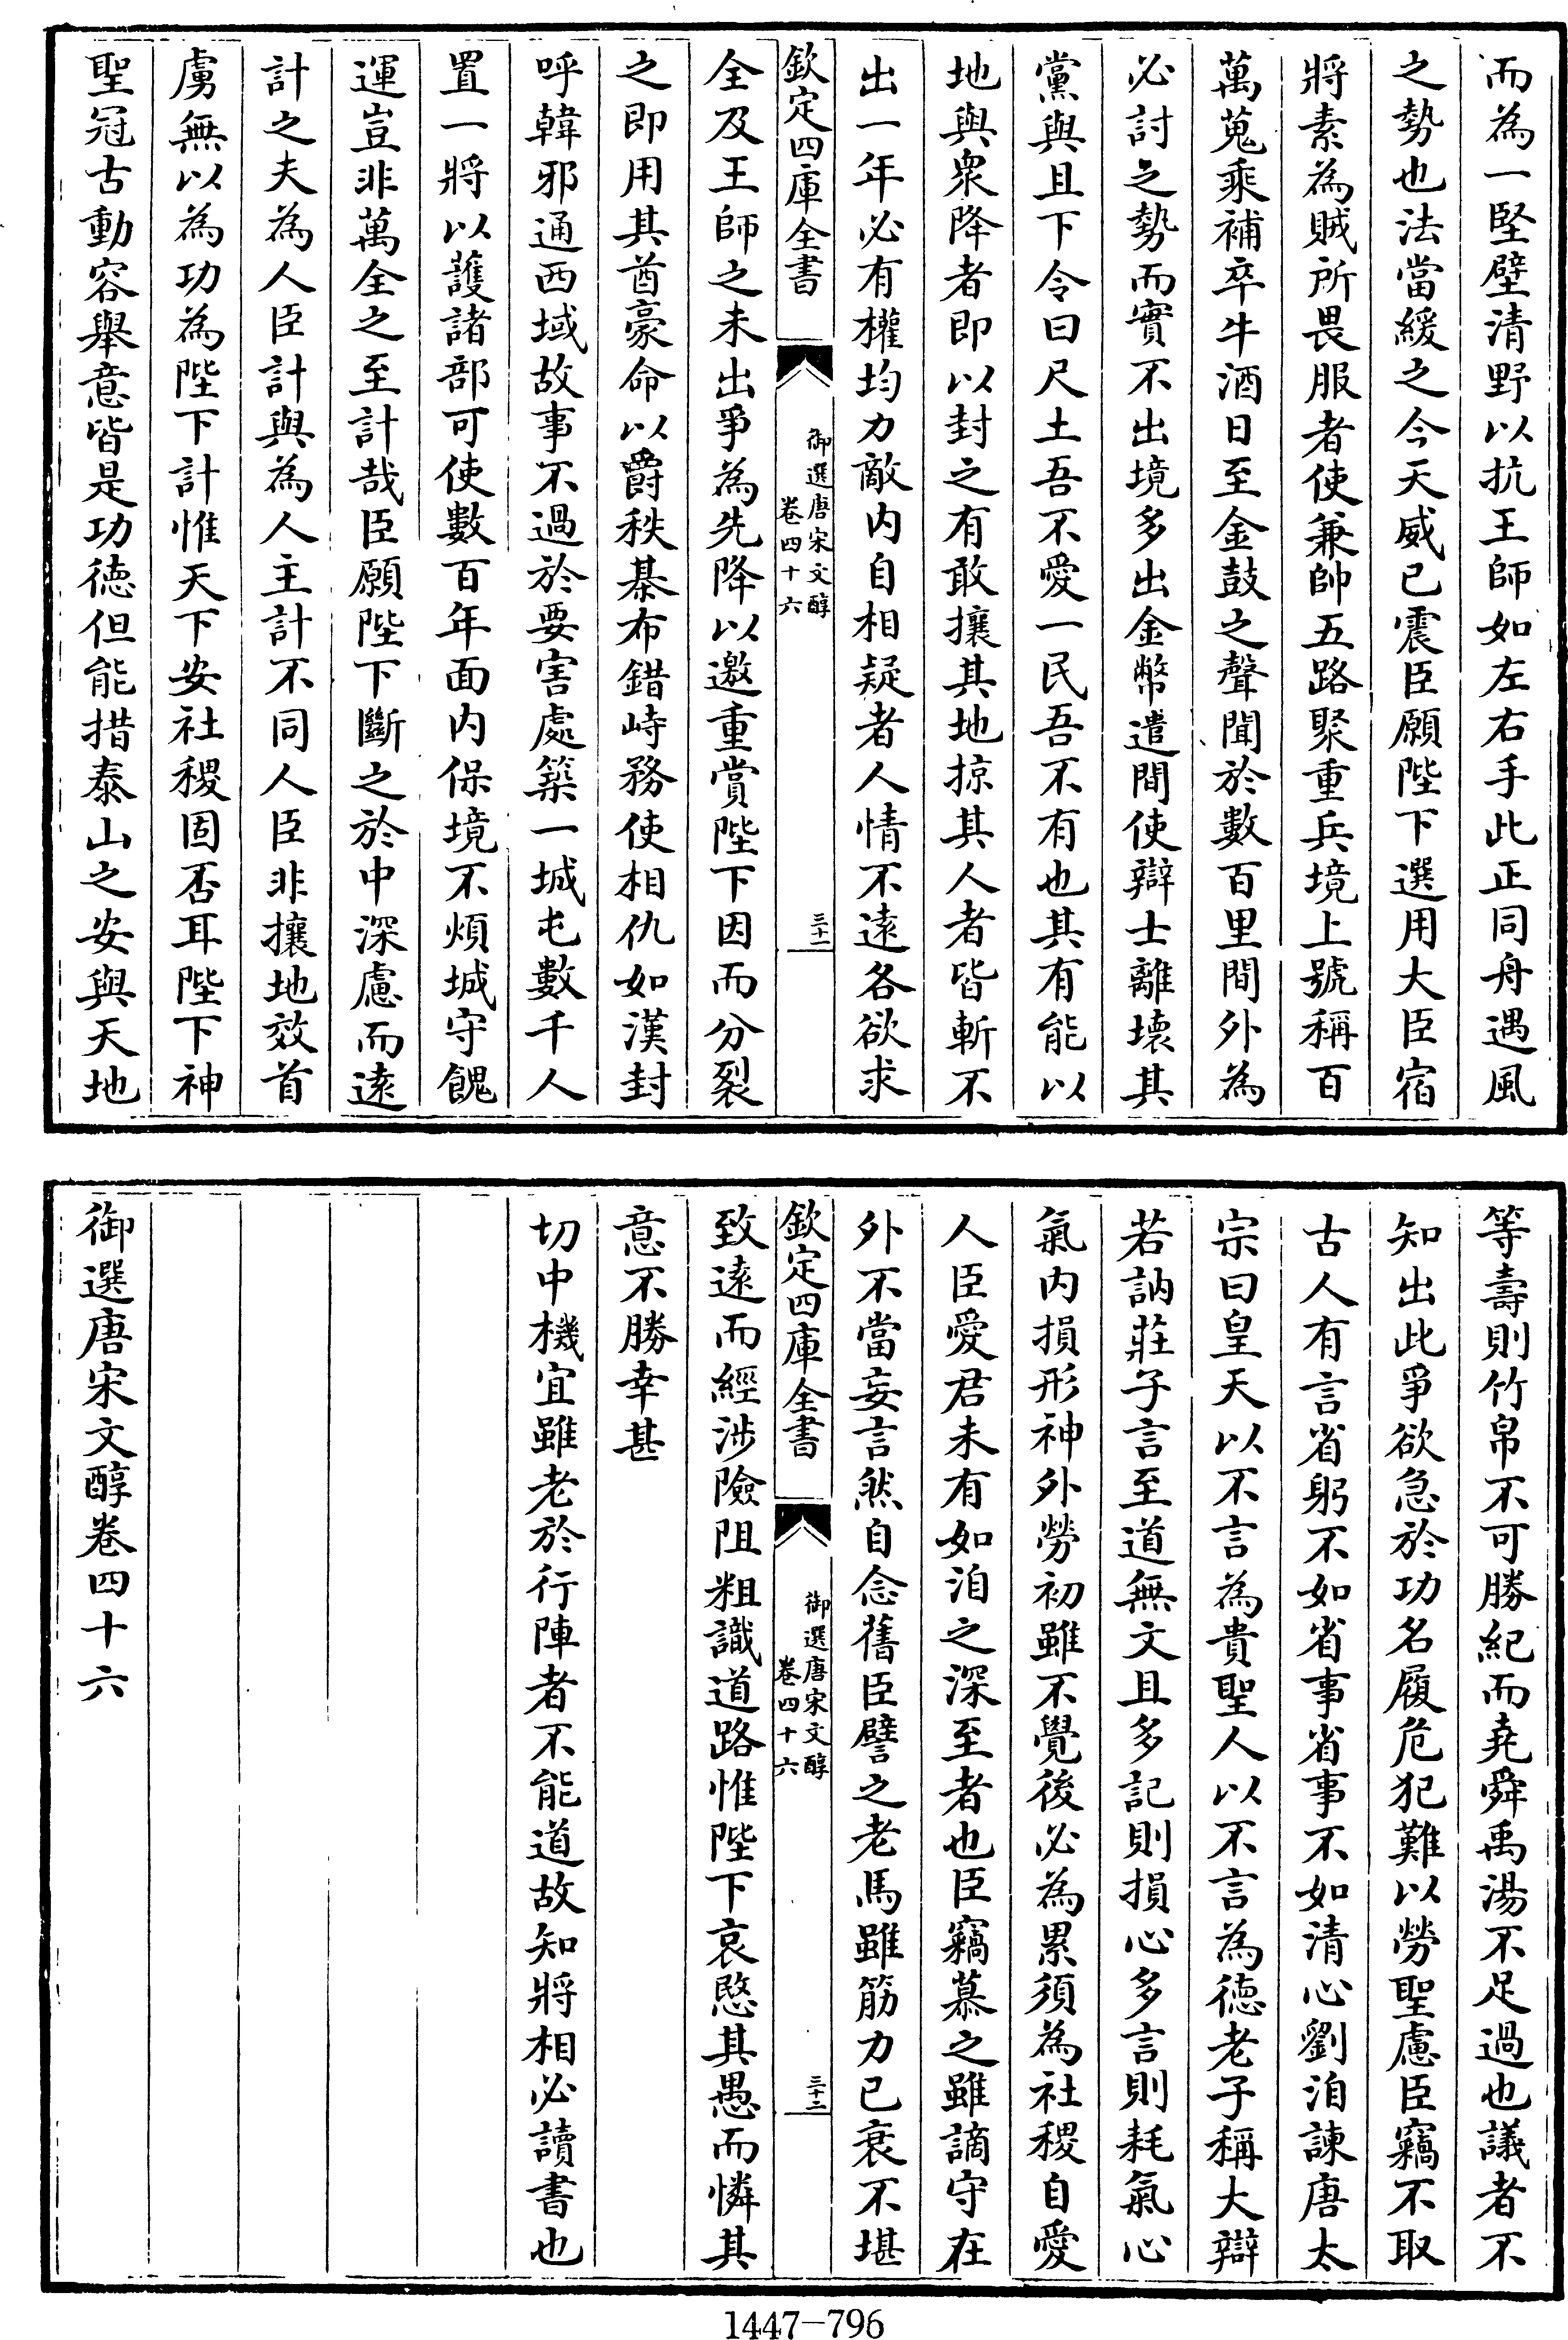 而為一堅壁清野以抗王師如左右手此正同舟遇風
之勢也法當緩之今天威已震臣願陛下選用大臣宿
將素為賊所畏服者使兼帥五路聚重兵境上號稱百
萬蒐乘補卒牛酒日至金鼓之聲聞於數百里間外為
必討之勢而實不出境多出金幣遣間使辯士離壞其
黨與且下令曰尺土吾不愛一民吾不有也其有能以
地與衆降者即以封之有敢攘其地掠其人者皆斬不
出一年必有權均力敵内自相疑者人情不遠各欲求
欽定四庫全書
御選唐宋文醇
卷四十六
三十一
全及王師之未出爭為先降以邀重賞陛下因而分裂
之即用其酋豪命以爵秩棊布錯峙務使相仇如漢封
呼韓邪通西域故事不過於要害處築一城屯數千人
置一將以護諸部可使數百年面内保境不煩城守餽
運豈非萬全之至計哉臣願陛下斷之於中深慮而遠
計之夫為人臣計與為人主計不同人臣非攘地效首
虜無以為功為陛下計惟天下安社稷固否耳陛下神
聖冠古動容舉意皆是功德但能措泰山之安與天地
等壽則竹帛不可勝紀而堯舜禹湯不足過也議者不
知出此爭欲急於功名履危犯難以勞聖慮臣竊不取
古人有言省躬不如省事省事不如清心劉洎諫唐太
宗曰皇天以不言為貴聖人以不言為德老子稱大辯
若訥莊子言至道無文且多記則損心多言則耗氣心
氣内損形神外勞初雖不覺後必為累須為社稷自愛
人臣愛君未有如洎之深至者也臣竊慕之雖謫守在
外不當妄言然自念舊臣譬之老馬雖筋力已衰不堪
欽定四庫全書
御選唐宋文醇
卷四十六
三十二
致遠而經涉險阻粗識道路惟陛下哀愍其愚而憐其
意不勝幸甚
切中機宜雖老於行陣者不能道故知將相必讀書也
御選唐宋文醇卷四十六
1447-796